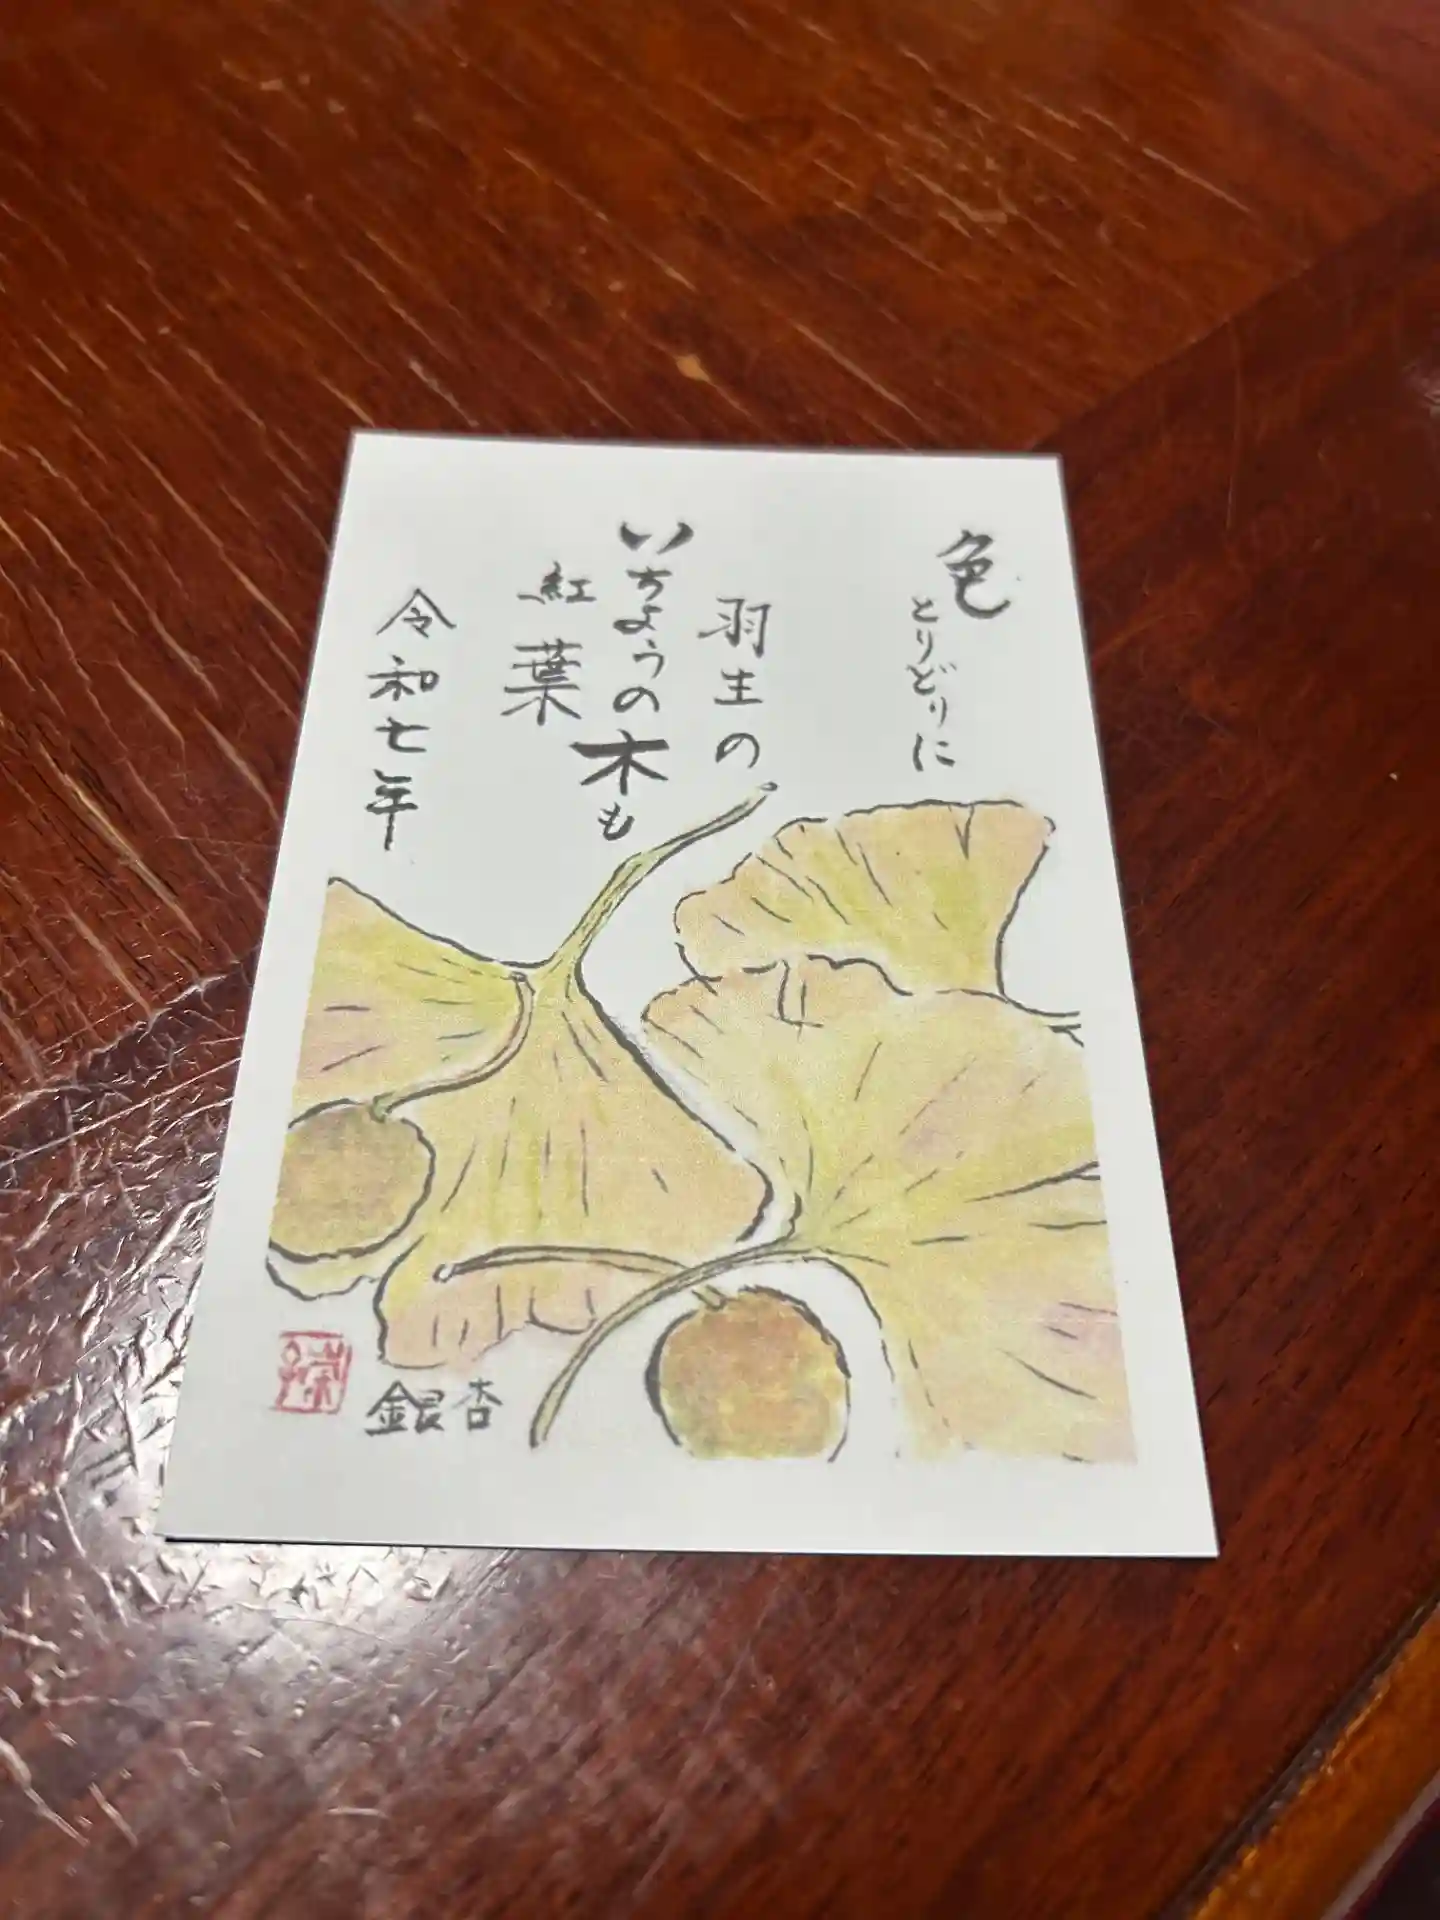 色
とりどりに
羽生の
いちょうの木も
紅葉
令和七年
銀杏